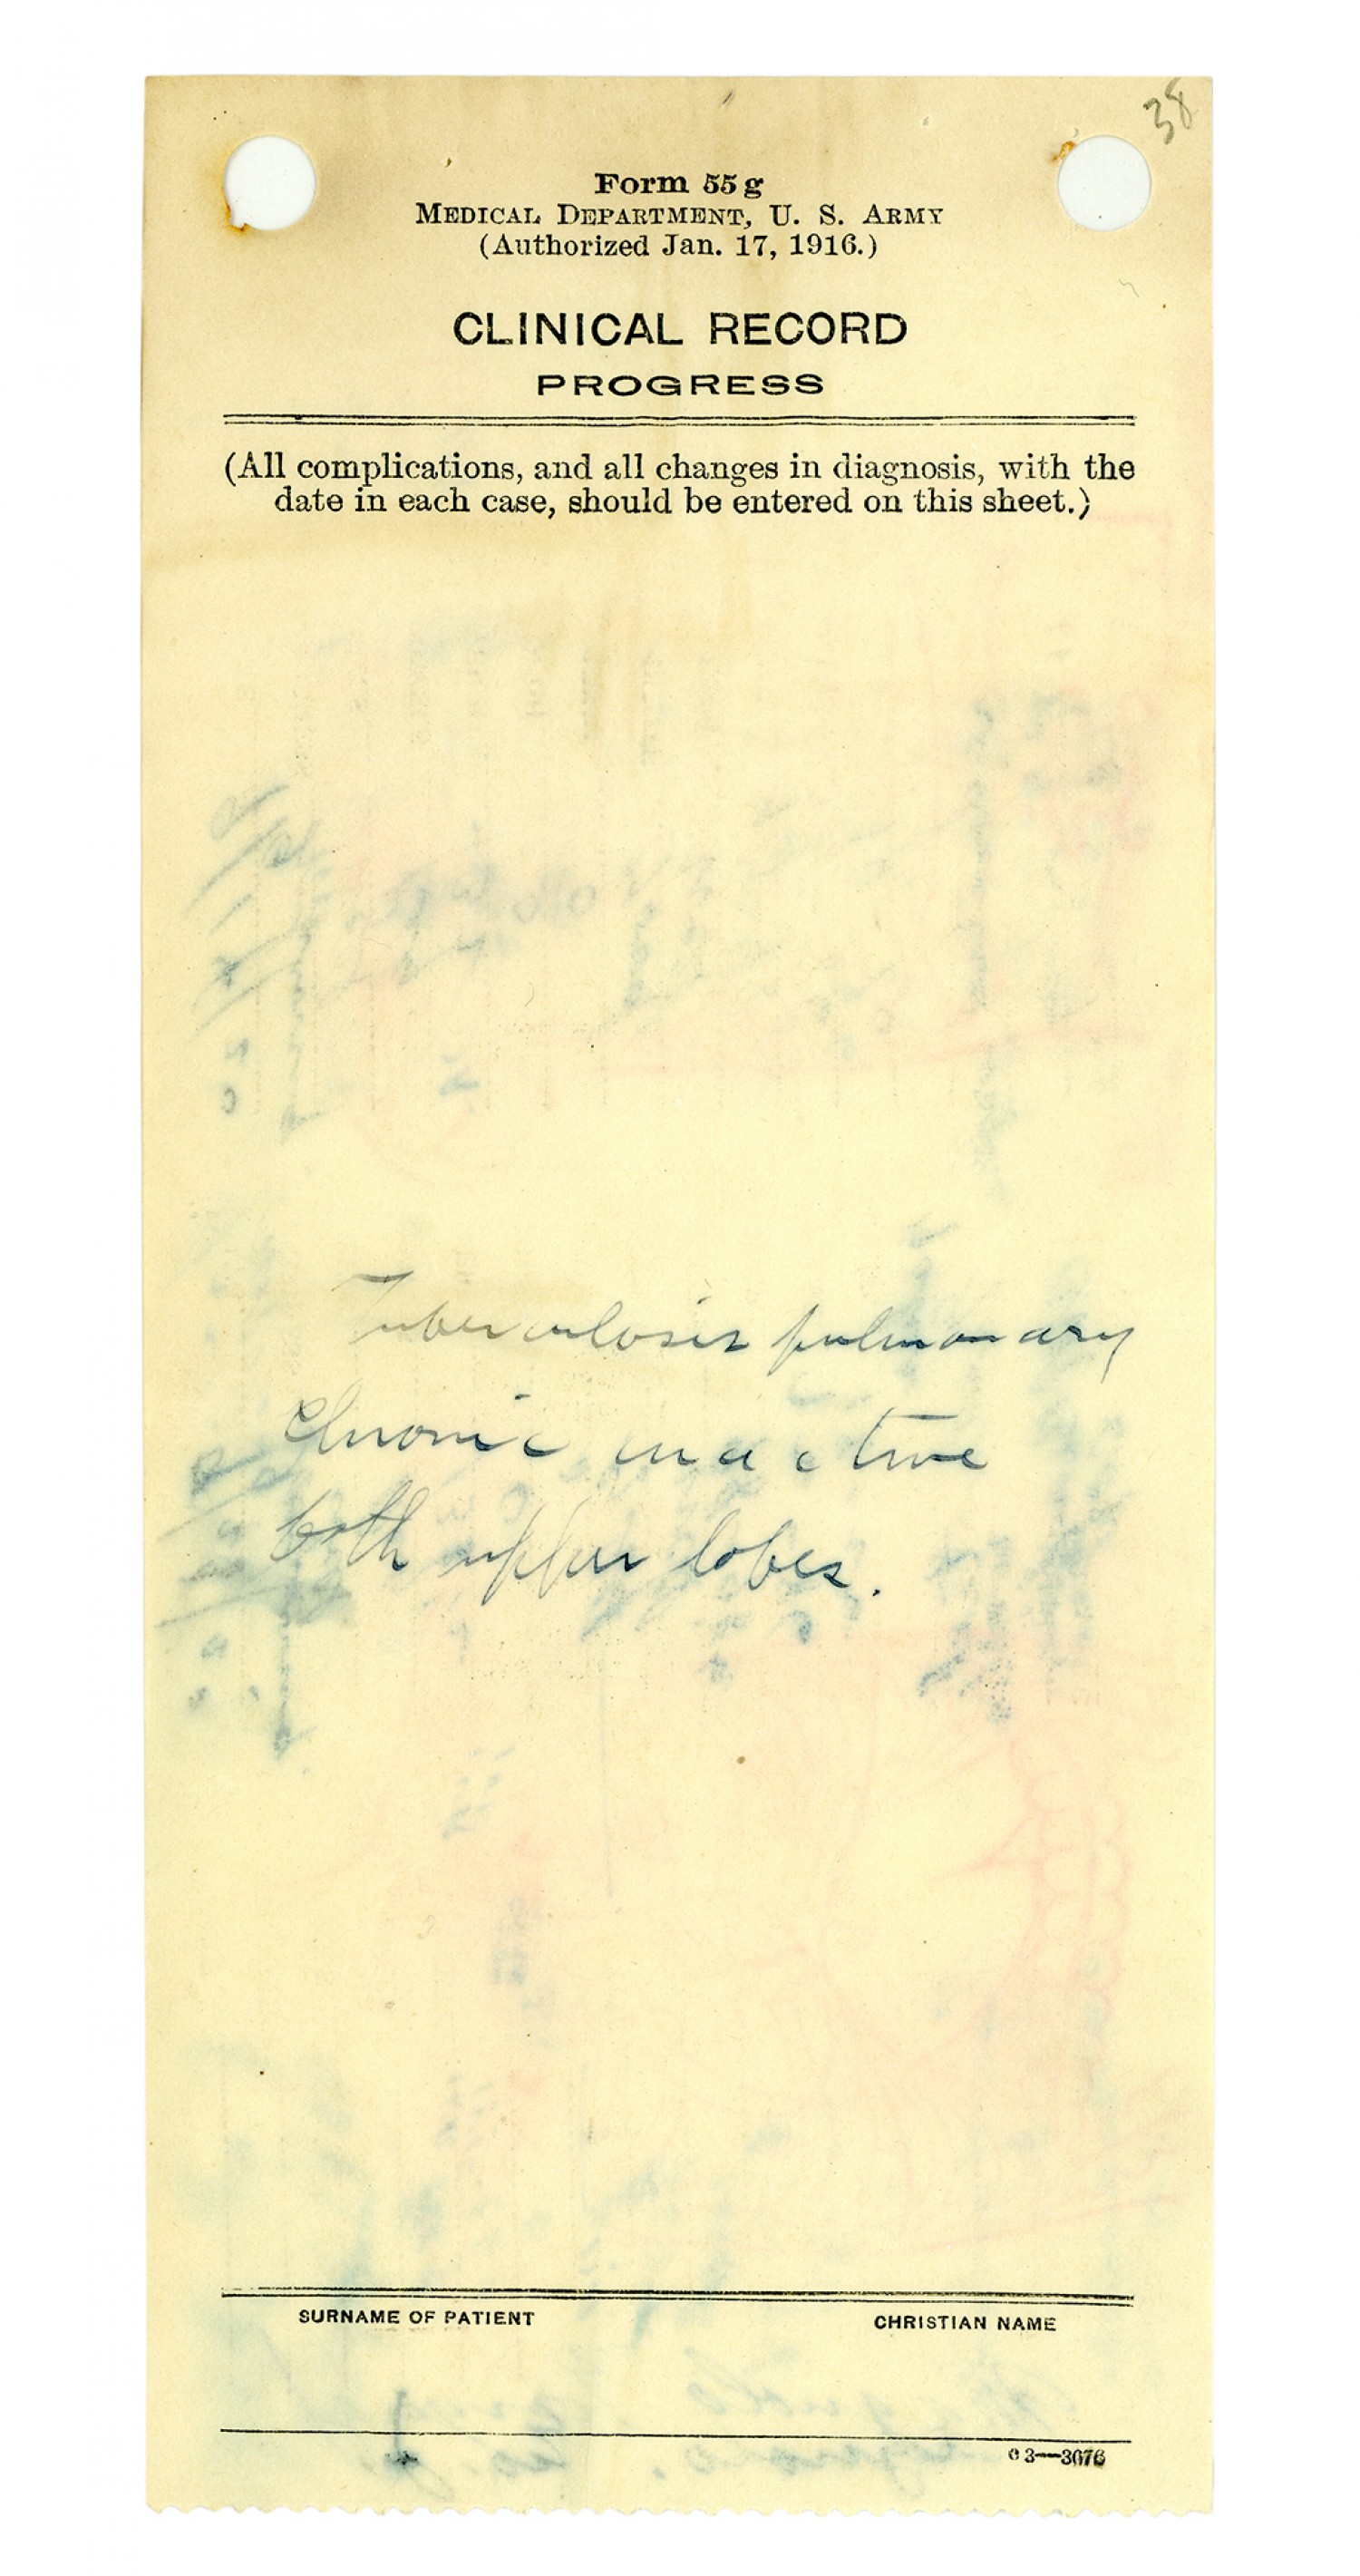 38
Form 55 g
MEDICAL DEPARTMENT, U. S. ARMY
(Authorized Jan. 17, 1916.)
CLINICAL RECORD
PROGRESS
(All complications, and all changes in diagnosis, with the
date in each case, should be entered on this sheet.)
Tuberculosis pulmonary
Chronic inactive
both upper lobes.
SURNAME OF PATIENT CHRISTIAN NAME
3—3076